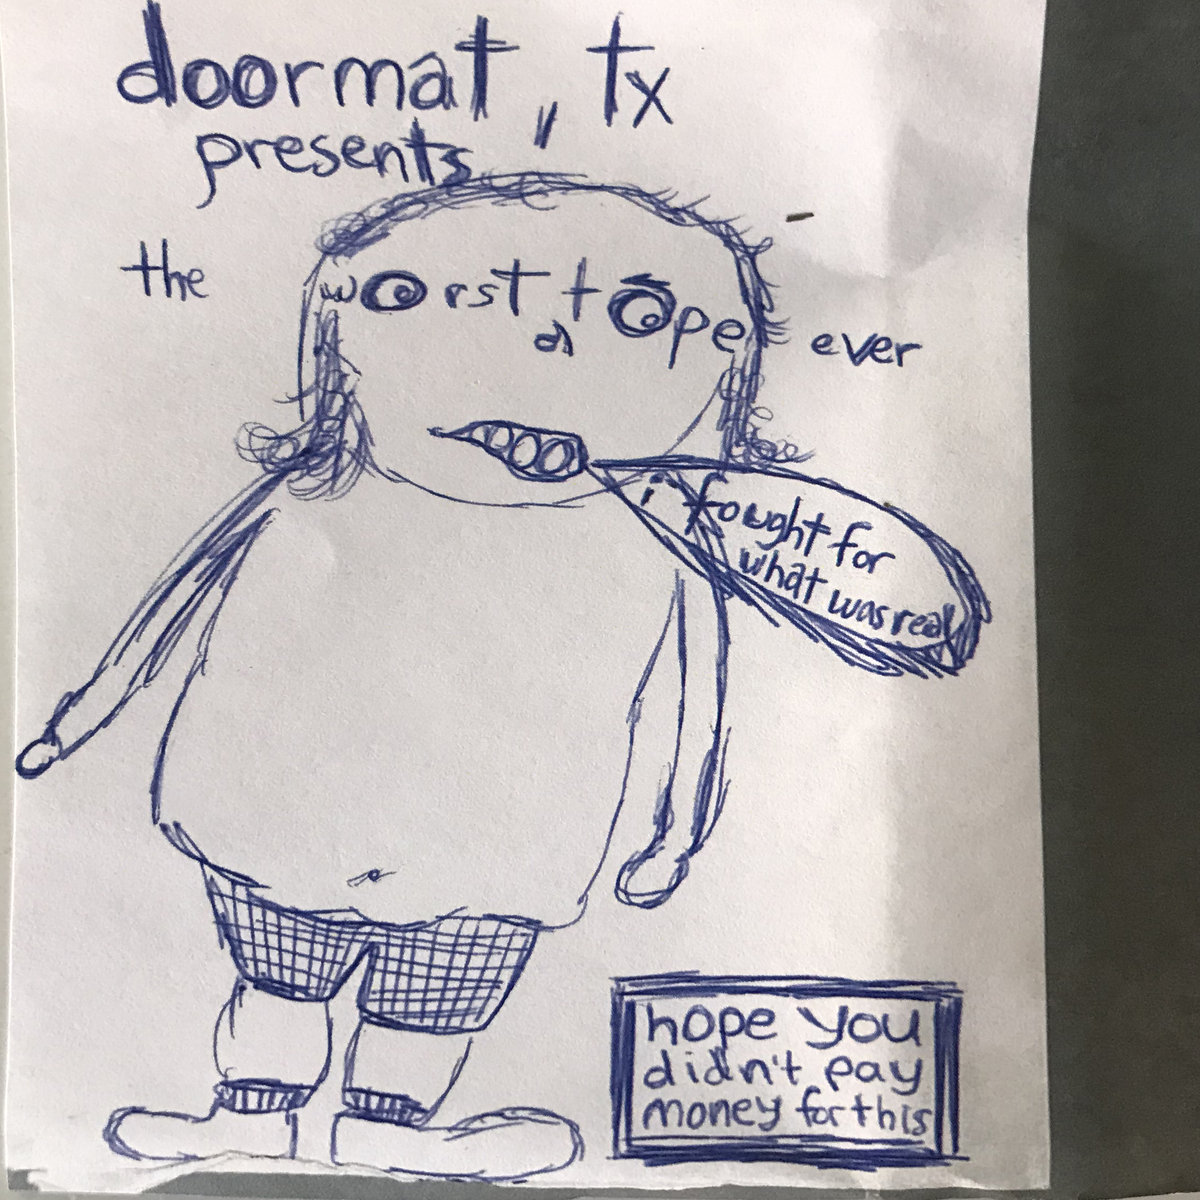 doormat, tx
presents "
the worst tape ever
i fought for
what was real
hope you
didn't pay
money for this